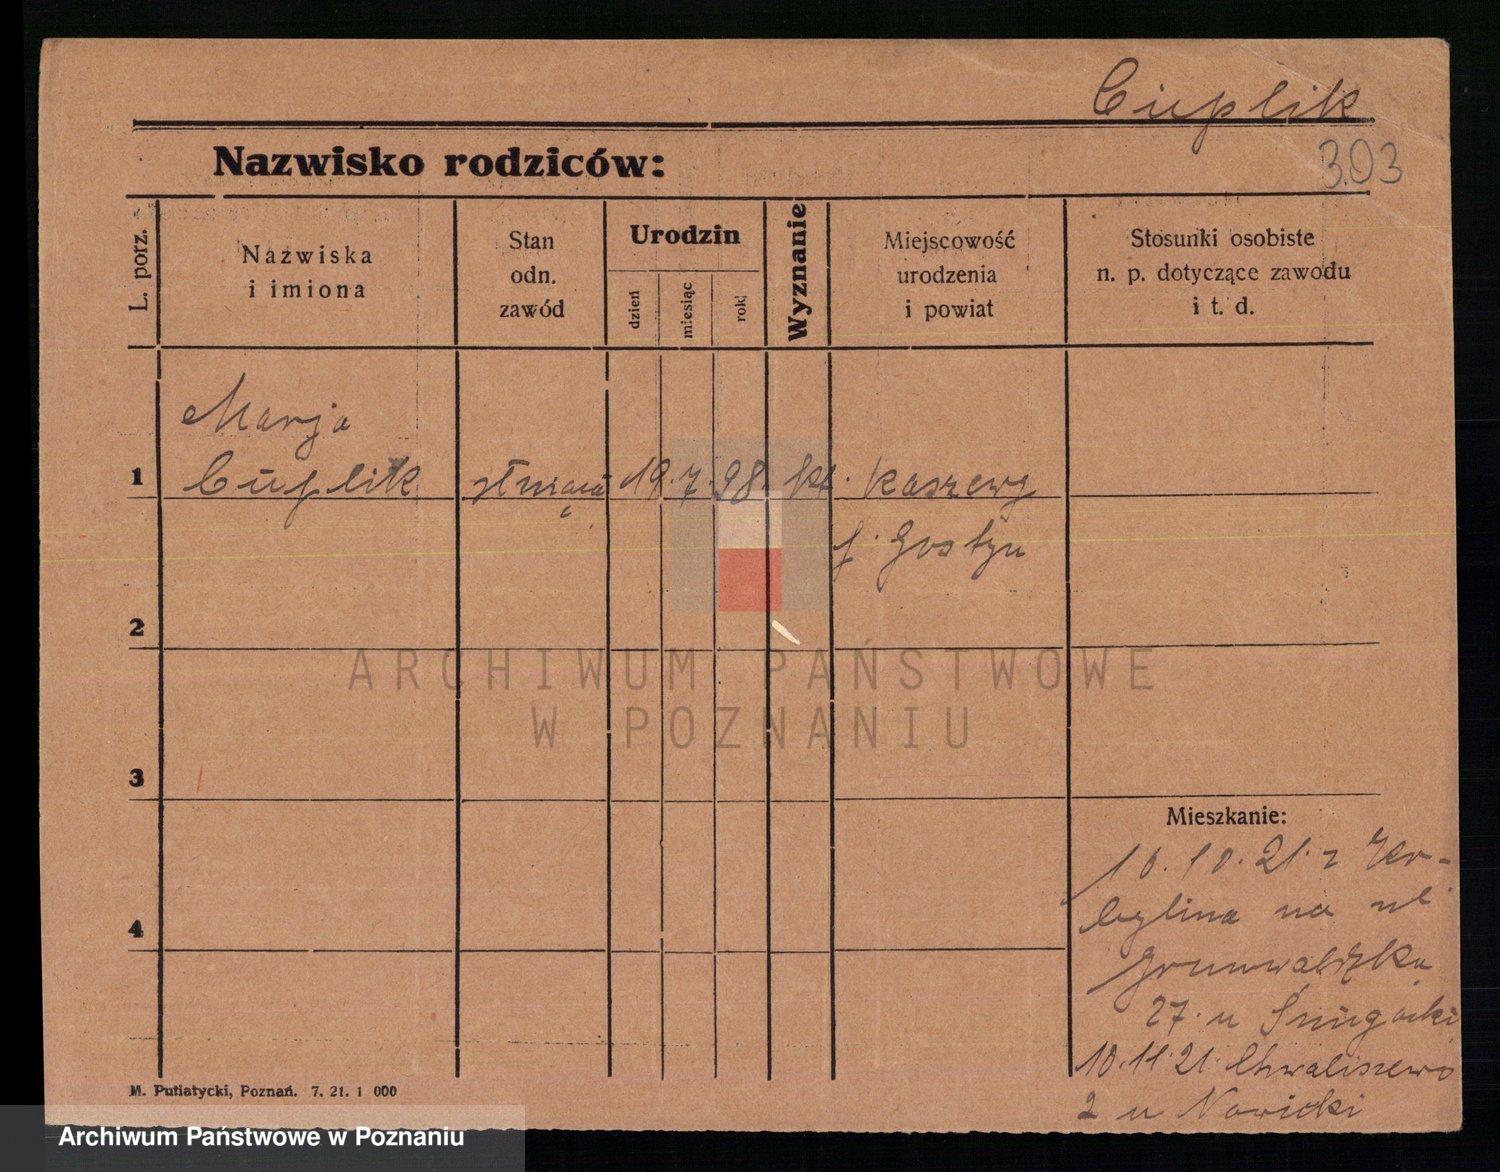 Cuplik
303
Nazwisko rodziców:
L. porz.
Nazwiska
i imiona
Stan
odn.
zawód
Urodzin
dzień
miesiąc
rok
Wyznanie
Miejscowość
urodzenia
i powiat
Stosunki osobiste
n. p. dotyczące zawodu
i t. d.
Marja
1 Cuplik służąca 19. 7. 98. kt. Kaszewy
p. Gostyn
2
ARCHIWUM PAŃSTWOWE
W POZNANIU
3
Mieszkanie:
10. 10. 21. z
na ul
Grunwaldzką
4
27. u
10. 11. 21. Chwaliszewo
2 u Nowicki
M. Putiatycki, Poznań. 7. 21. 1 000
Archiwum Państwowe w Poznaniu